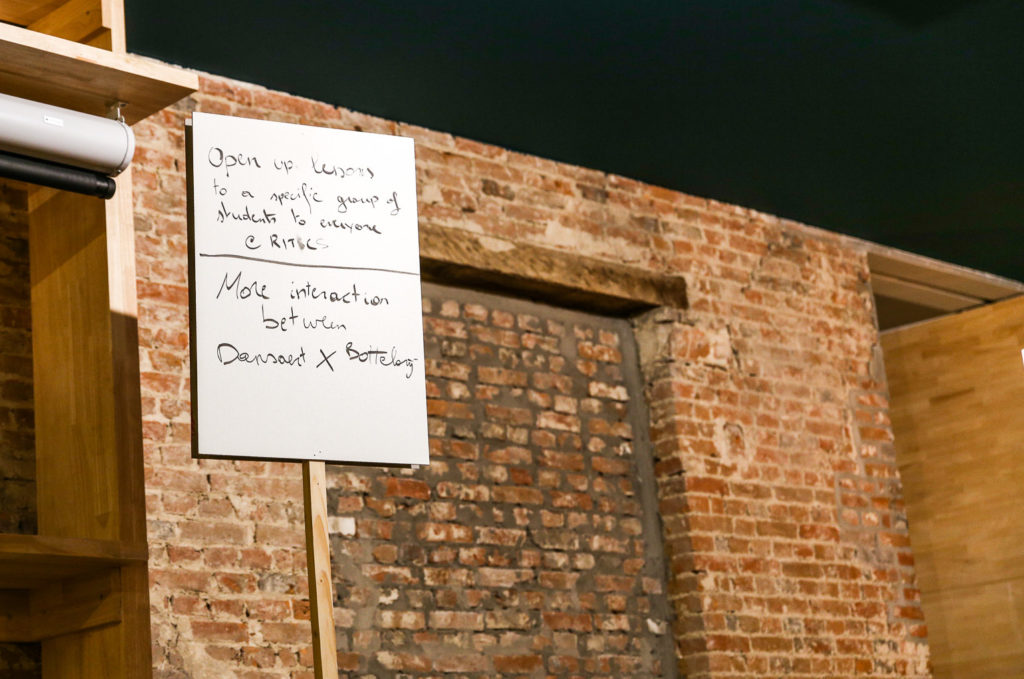 Open up lessons
to a specific group of
students to everyone
CRITICS
More interaction
between
Dansaert X Bottelarij